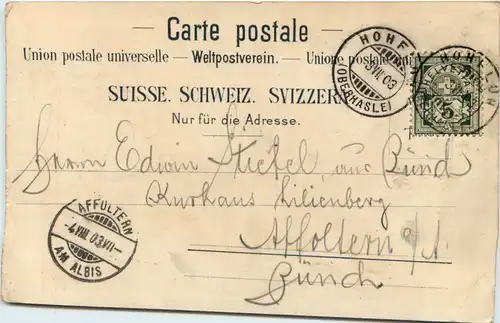 Carte postale
Union postale universelle – Weltpostverein. – Unione postale
SUISSE. SCHWEIZ. SVIZZERA
Nur für die Adresse.
HOHFLUH
(OBERHASLE)
3 VIII 03
HOHFLUH
HELVETIA
5
Herrn Edwin Stiefel, aus Zürich
Kurhaus Lilienberg
Affoltern a/A
Zürich
AFFOLTERN
-4 VIII 03 VII-
AM ALBIS